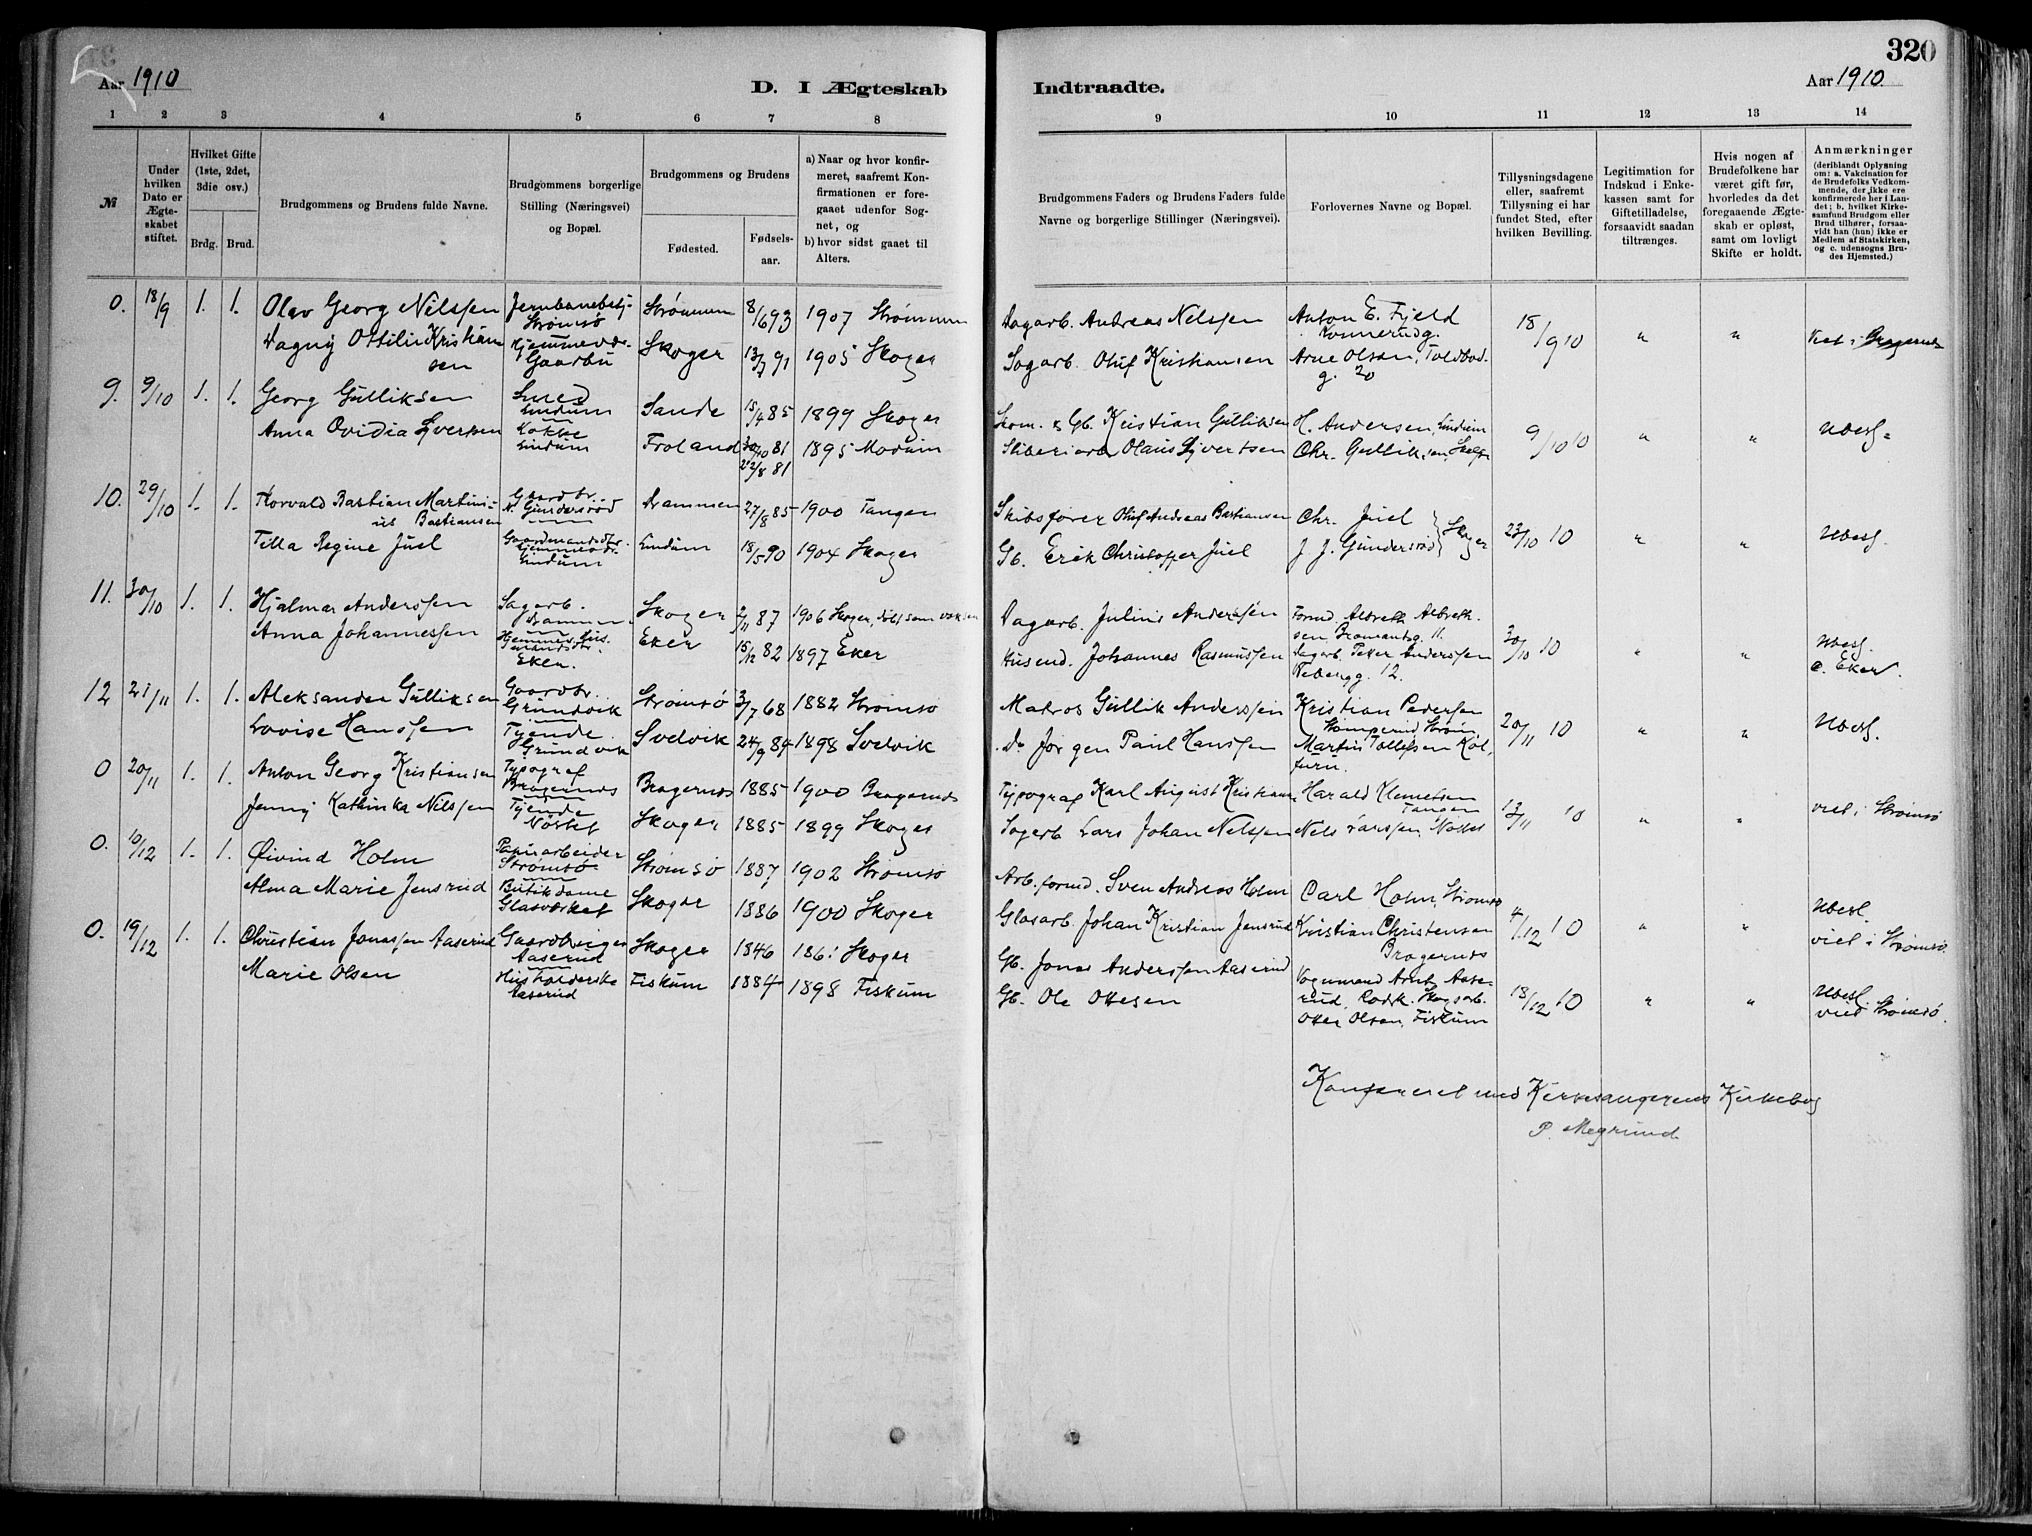 Aar 1910
D. I Ægteskab
Indtraadte.
320
Aar 1910.
1 2 3 4 5 6 7 8
9 10 11 12 13 14
№
Under hvilken Dato er Ægteskabet stiftet.
Hvilket Gifte (1ste, 2det, 3die osv.)
Brdg. Brud.
Brudgommens og Brudens fulde Navne.
Brudgommens borgerlige Stilling (Næringsvei) og Bopæl.
Brudgommens og Brudens
Fødested.
Fødselsaar.
a) Naar og hvor konfirmeret, saafremt Konfirmationen er foregaaet udenfor Sognet, og
b) hvor sidst gaaet til Alters.
Brudgommens Faders og Brudens Faders fulde Navne og borgerlige Stillinger (Næringsvei).
Forlovernes Navne og Bopæl.
Tillysningsdagene eller, saafremt Tillysning ei har fundet Sted, efter hvilken Bevilling.
Legitimation for Indskud i Enkekassen samt for Giftetilladelse, forsaavidt saadan tiltrænges.
Hvis nogen af Brudefolkene har været gift før, hvorledes da det foregaaende Ægteskab er opløst, samt om lovligt Skifte er holdt.
Anmærkninger (deriblandt Oplysning om: a. Vakcination for de Brudefolks Vedkommende, der ikke ere konfirmerede her i Landet; b. hvilket Kirkesamfund Brudgom eller Brud tilhører, forsaavidt han (hun) ikke er Medlem af Statskirken, og c. udensogns Brudes Hjemsted.)
0. 18/9 1. 1. Olav Georg Nilssen Jernbanebetj. Strømsø Strømm 8/6 93 1907 Strømm
Dagny Ottilie Kristiansen Hjemmevær. Gaarbu Skoger 13/7 91 1905 Skoger
Dagarb. Andreas Nilssen Anton E. Fjeld Konnerudg. 18/9 10 " "
Sagarb. Oluf Kristiansen Arne Olsen, Toldbodg. 20
9. 9/10 1. 1. Georg Gulliksen Smed Lindum Sande 15/4 85 1899 Skoger
Anna Ovidia Syversen Kokke Lindum Froland 30/10 81 1895 Modum
22/8 81
Skom. & Gb. Kristian Gulliksen H. Andersen, Lindum 9/10 10 " " Ubesl.
Sliberiarb Olaus Syvertsen Chr. Gulliksen, Skoger
10. 29/10 1. 1. Torvald Bastian Martinius Bastiansen Gaardbr. N. Gundersrød Drammen 27/8 85 1900 Tangen
Tilla Regine Juel Gaardmandsdtr. Hjemmevær. Lindum Lindum 18/5 90 1904 Skoger
Skibsfører Oluf Andreas Bastiansen Chr. Juel 23/10 10 " " Ubesl.
Gb. Erik Christopher Juel J. J. Gundersrød Skoger
11. 30/10 1. 1. Hjalmar Anderssen Sagarb. Drammen Skoger 2/11 87 1906 Skoger, døbt som voksen
Anna Johannessen Eker. Eker 15/12 82 1897 Eker
Dagarb. Julius Anderssen Formd. Albreth Albrethsen, Bromantsg. 11. 30/10 10 " " Ubesl.
Husmd. Johannes Rasmussen Sagarb. Peter Anderssen Rebergg. 12. c. Eker.
12 21/11 1. 1. Aleksander Gulliksen Gaardbr. Grundvik Strømsø 3/7 68 1882 Strømsø
Lovise Hanssen Tjende. Grundvik Svelvik 24/9 84 1898 Svelvik
Matros Gullik Anderssen Kristian Pedersen 20/11 10 " " Ubesl.
Do Jørgen Paul Hanssen Martin Tollefsen Kolfuru.
0 20/11 1. 1. Anton Georg Kristiansen Typograf Bragernes Bragernes 1885 1900 Bragernes
Jenny Kathinka Nilssen Tjende Nøstet Skoger 1885 1899 Skoger
Typograf Karl August Kristians. Harald Klemetsen Tangen 13/11 10 " " viet i Strømsø
Sagarb Lars Johan Nilssen Nils Larssen, Nøstet
0. 10/12 1. 1. Øivind Holm Papirarbeider Strømsø Strømsø 1887 1902 Strømsø
Alma Marie Jensrud Butikdame Glasværket Skoger 1886 1900 Skoger
Arb.formd. Sven Andreas Holm Carl Holm, Strømsø 4/12 10 " " Ubesl.
Glasarb. Johan Kristian Jensrud Kristian Christensen Bragernes viet i Strømsø
0. 19/12 1. 1. Christian Jonassen Aaserud Gaardbruger Aaserud Skoger 1846 1861 Skoger
Marie Olsen Husholderske Aaserud Fiskum 1884 1898 Fiskum
Gb. Jonas Anderssen Aaserud Vognmand Arnt Aaserud, Rødk. Skogsarb. 18/12 10 " " Ubesl.
Gb. Ole Ottesen Otter Olsen, Fiskum viet Strømsø.
Konfereret med Kirkesangerens Kirkebog
P. Megrund